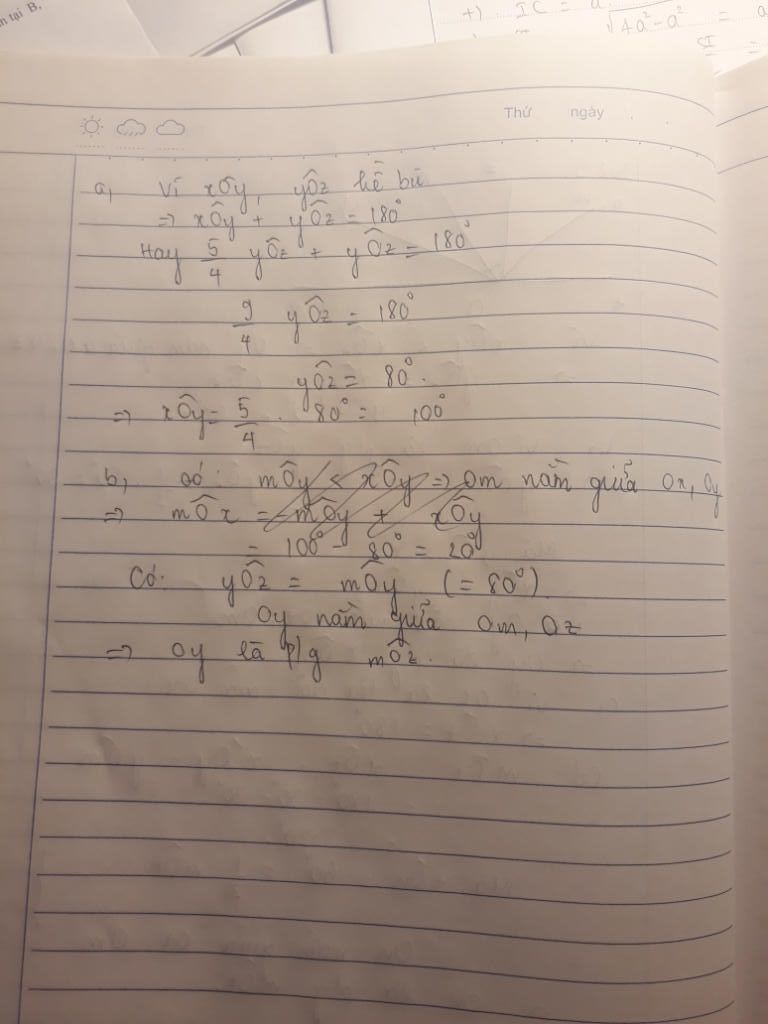 n tại B.
+) IC = a
√4a² - a² = a
SI =
Thứ ngày
a, Vì xÔy, yÔz kề bù
=> xÔy + yÔz = 180°
Hay 5/4 yÔz + yÔz = 180°
9/4 yÔz = 180°
yÔz = 80°.
=> xÔy = 5/4 . 80° = 100°
b, Có: mÔy < xÔy => Om nằm giữa Ox, Oy
=> mÔx = mÔy + xÔy
= 100° - 80° = 20°
Có: yÔz = mÔy (= 80°).
Oy nằm giữa Om, Oz
=> Oy là p/g mÔz.